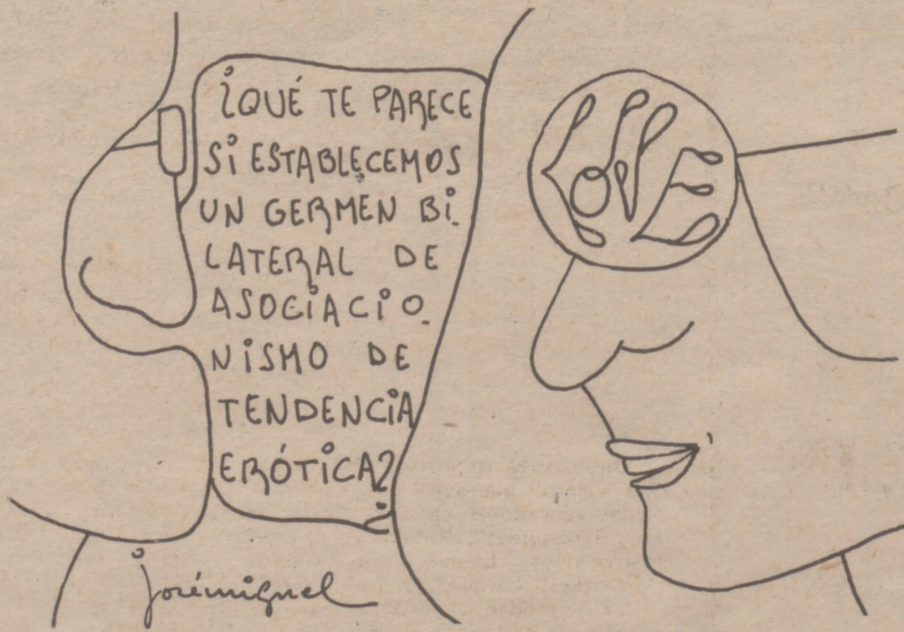 ¿QUÉ TE PARECE
Si ESTABLECEMOS
UN GERMEN Bi.
LATERAL DE
ASOCIACIO.
NISMO DE
TENDENCIA
ERÓTICA?
LOVE
josémiguel